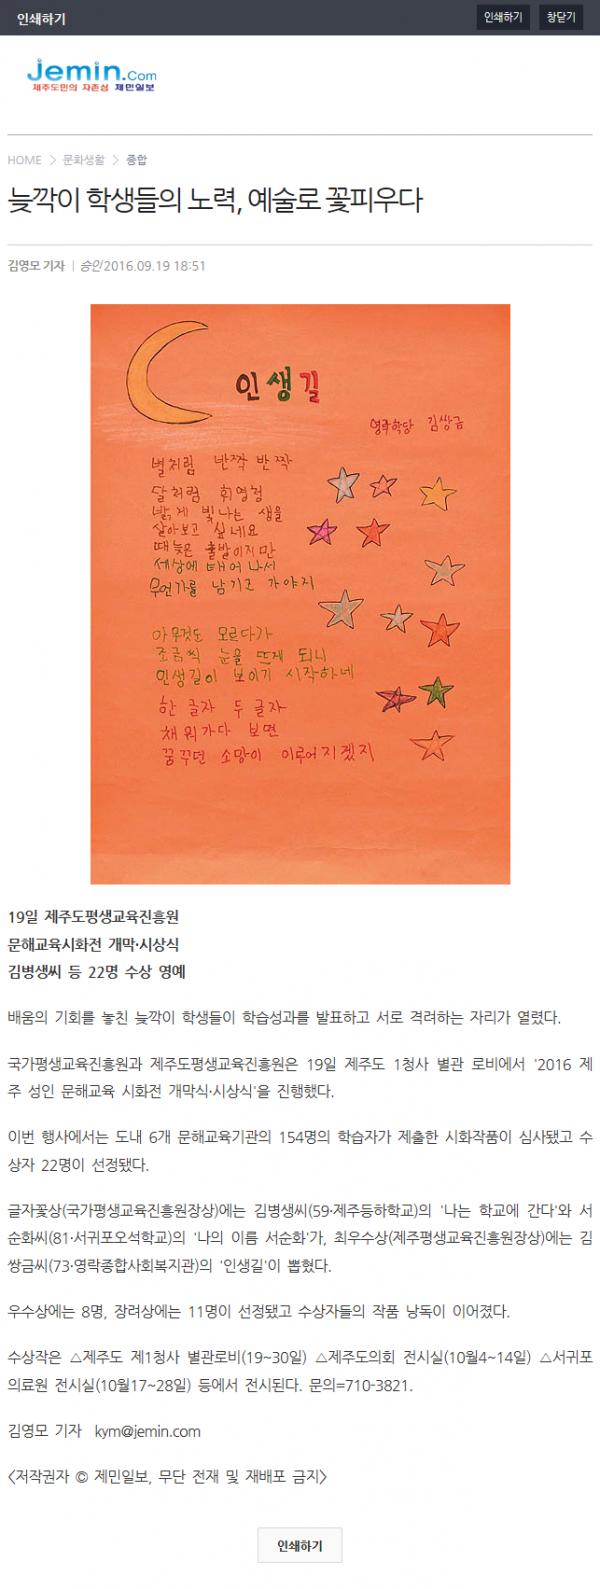 인쇄하기
인쇄하기 창닫기
Jemin.Com
제주도민의 자존심 제민일보
HOME > 문화생활 > 종합
늦깍이 학생들의 노력, 예술로 꽃피우다
김영모 기자 | 승인 2016.09.19 18:51
인생길
영락학당 김쌍금
별처럼 반짝 반짝
달처럼 휘영청
밝게 빛나는 생을
살아보고 싶네요
때늦은 출발이지만
세상에 태어나서
무언가를 남기고 가야지
아무것도 모르다가
조금씩 눈을 뜨게 되니
인생길이 보이기 시작하네
한 글자 두 글자
채워가다 보면
꿈꾸던 소망이 이루어지겠지
19일 제주도평생교육진흥원
문해교육시화전 개막·시상식
김병생씨 등 22명 수상 영예
배움의 기회를 놓친 늦깍이 학생들이 학습성과를 발표하고 서로 격려하는 자리가 열렸다.
국가평생교육진흥원과 제주도평생교육진흥원은 19일 제주도 1청사 별관 로비에서 '2016 제
주 성인 문해교육 시화전 개막식·시상식'을 진행했다.
이번 행사에서는 도내 6개 문해교육기관의 154명의 학습자가 제출한 시화작품이 심사됐고 수
상자 22명이 선정됐다.
글자꽃상(국가평생교육진흥원장상)에는 김병생씨(59·제주등하학교)의 '나는 학교에 간다'와 서
순화씨(81·서귀포오석학교)의 '나의 이름 서순화'가, 최우수상(제주평생교육진흥원장상)에는 김
쌍금씨(73·영락종합사회복지관)의 '인생길'이 뽑혔다.
우수상에는 8명, 장려상에는 11명이 선정됐고 수상자들의 작품 낭독이 이어졌다.
수상작은 △제주도 제1청사 별관로비(19~30일) △제주도의회 전시실(10월4~14일) △서귀포
의료원 전시실(10월17~28일) 등에서 전시된다. 문의=710-3821.
김영모 기자 kym@jemin.com
<저작권자 © 제민일보, 무단 전재 및 재배포 금지>
인쇄하기